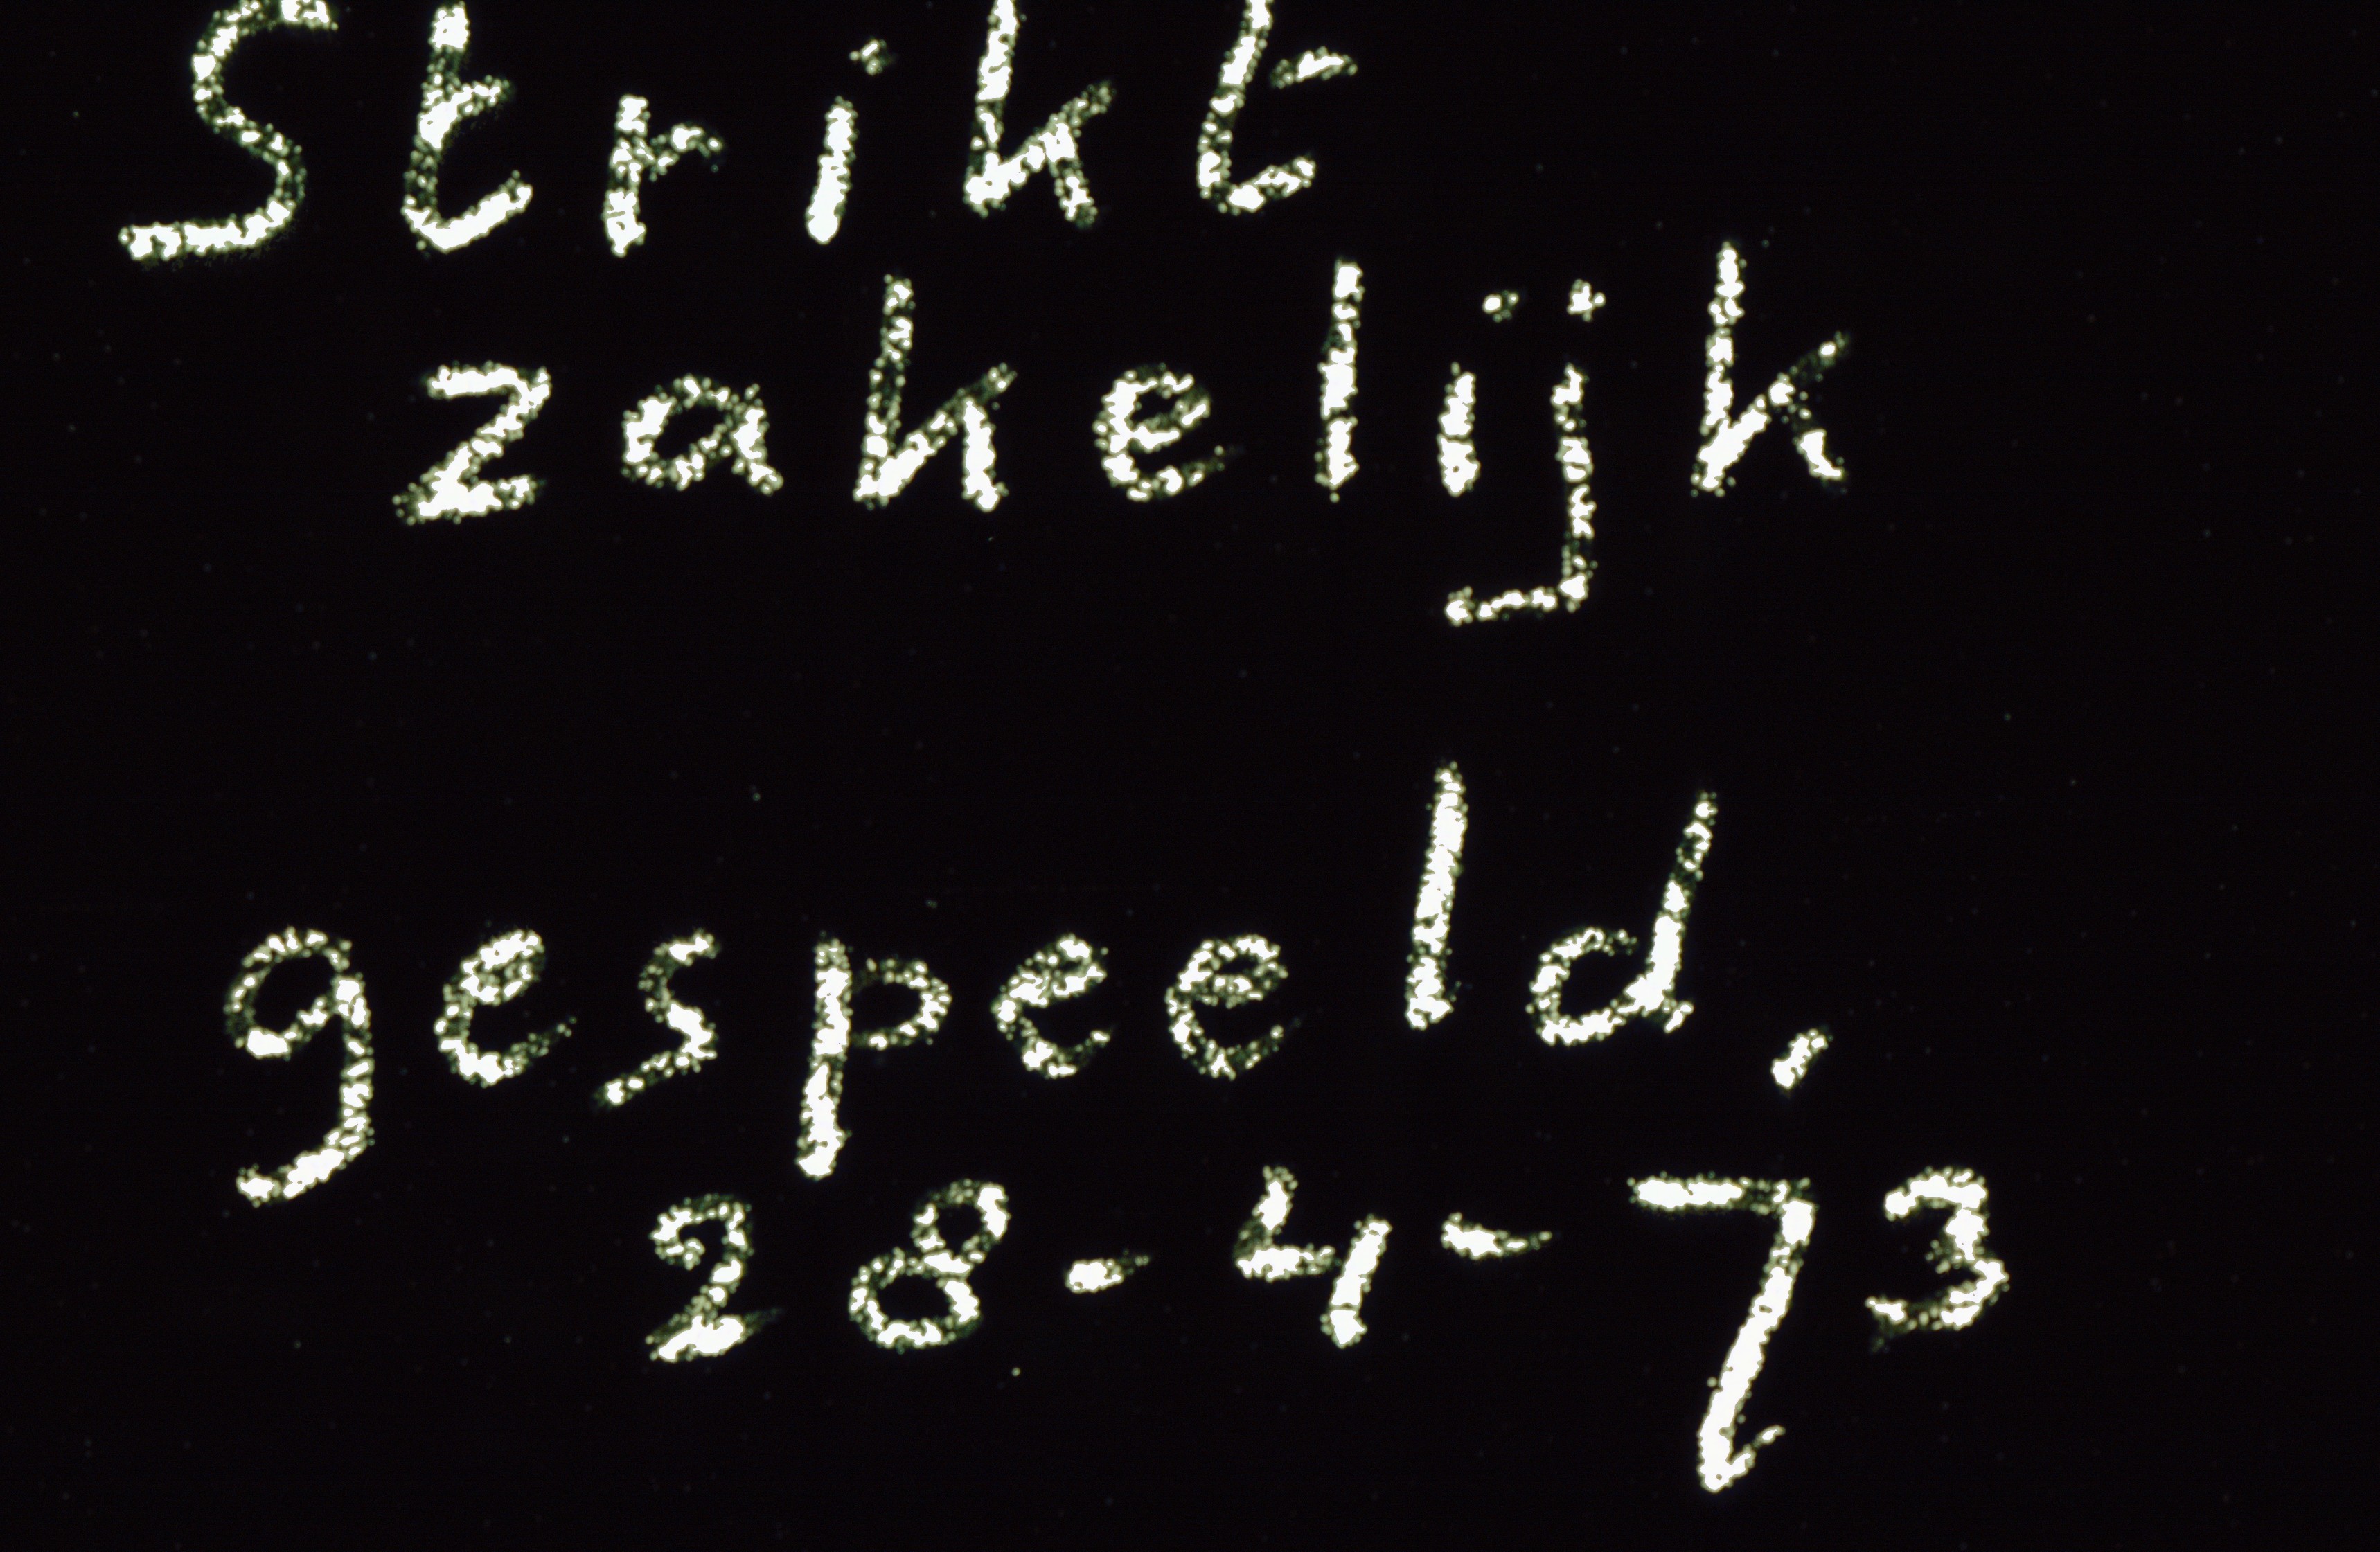 Strikt
zakelijk
gespeeld,
28-4-73